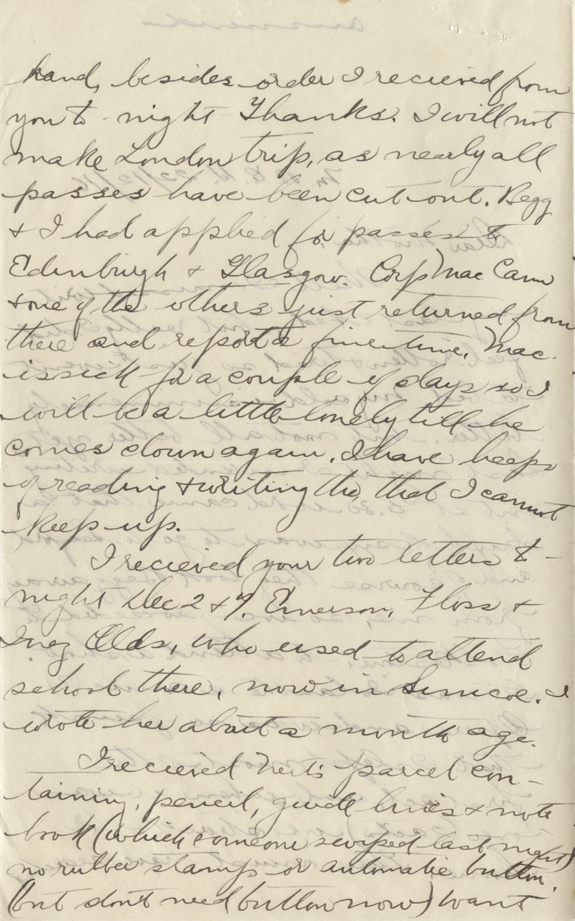 hand, besides order I recieved from
you to-night Thanks. I will not
make London trip, as nearly all
passes have been cut out. Begg
& I had applied for passes to
Edinburgh & Glasgow. Corp Mac Cann
& one of the others just returned from
there and report a fine time. Mac.
is sick for a couple of days so I
will be a little lonely till he
comes down again. I have heaps
of reading & writing tho, that I cannot
keep up.
I recieved your two letters to-
night Dec 2 & 7. Emerson, Floss &
Inez Olds, who used to attend
school there, now in Simcoe. I
wrote her about a month ago.
I recieved parcel con-
taining, pencil, & note
book (which someone swiped last night)
no rubber stamps or automatic button
(but don't need button now) want